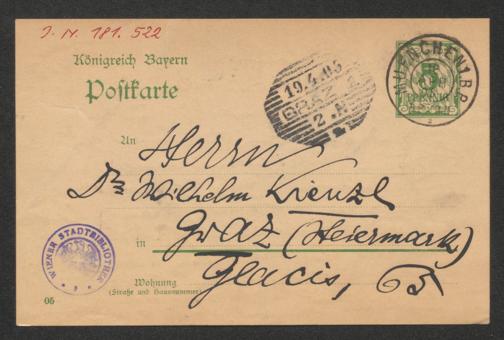 J. N. 181.522
Königreich Bayern
Postkarte
MUENCHEN 1 B.P.
5
PFENNIG
19.4.05
GRAZ
2. N
An
Herrn
Dr Wilhelm Kienzl
in Graz (Steiermark)
Glacis, 65
Wohnung
(Straße und Hausnummer)
WIENER STADTBIBLIOTHEK
05